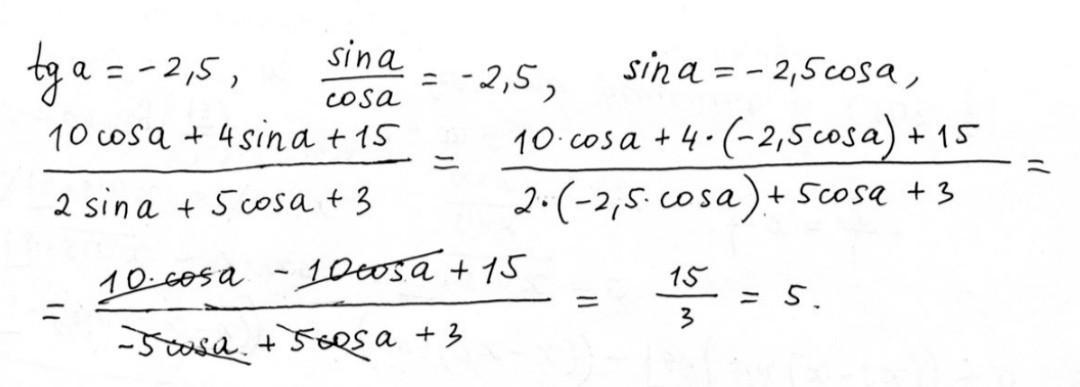 tg a = -2,5, sin a / cos a = -2,5, sin a = -2,5 cos a,
(10 cos a + 4 sin a + 15) / (2 sin a + 5 cos a + 3) = (10·cos a + 4·(-2,5 cos a) + 15) / (2·(-2,5·cos a) + 5 cos a + 3) =
= (10·cos a - 10 cos a + 15) / (-5 cos a + 5 cos a + 3) = 15 / 3 = 5.